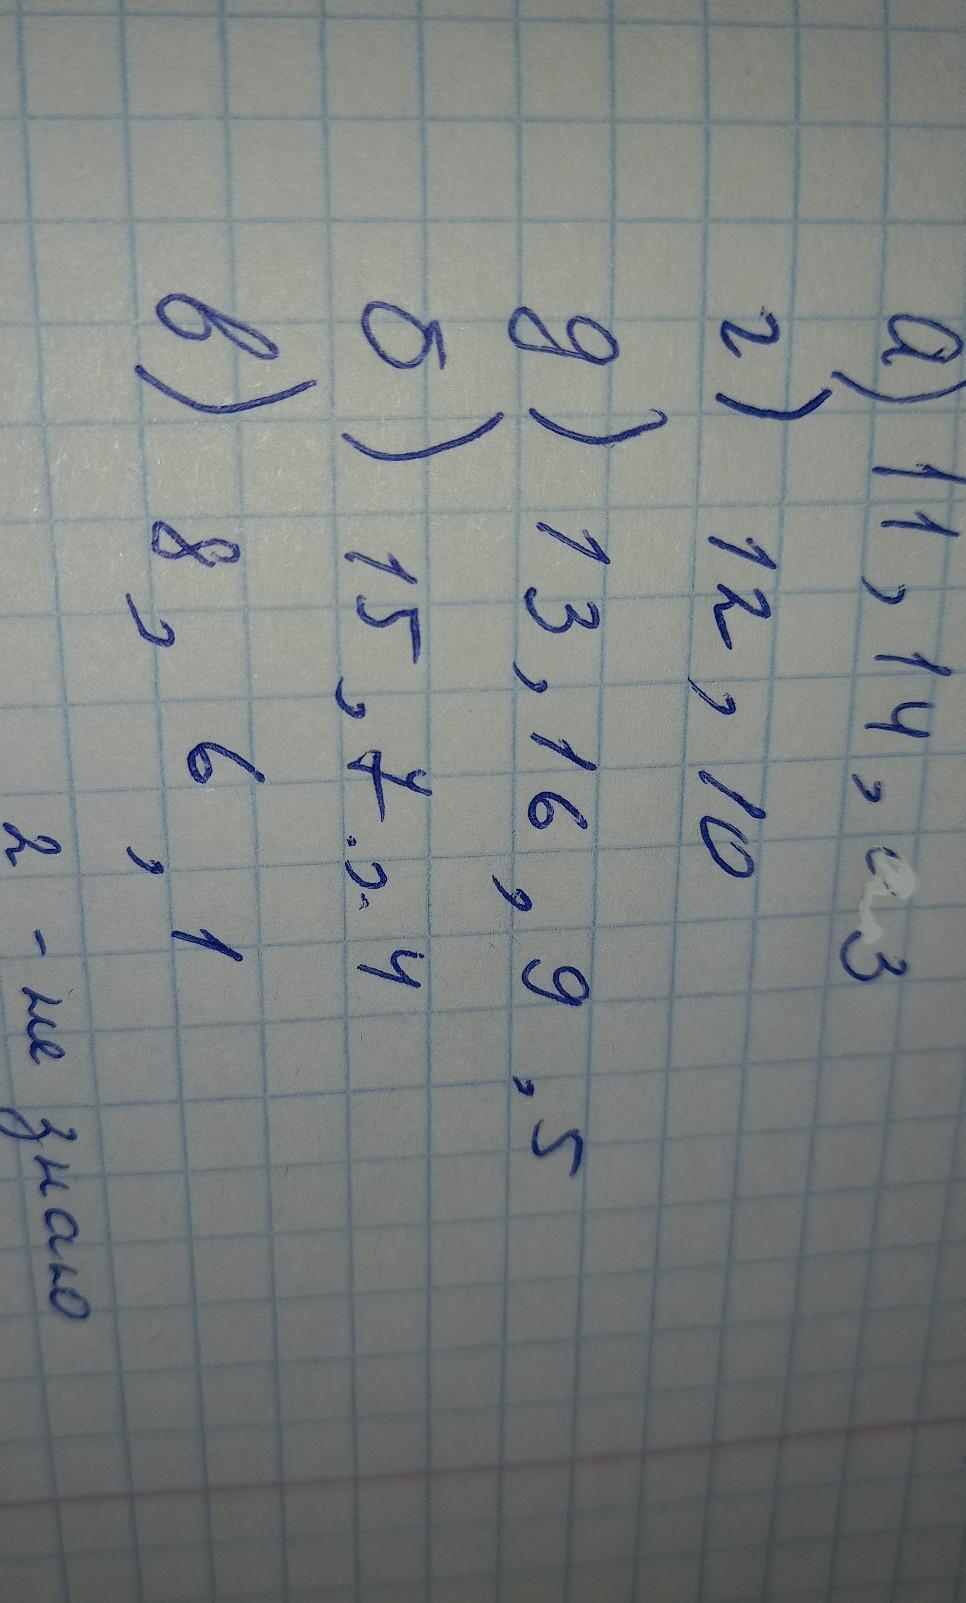 а) 11, 14, 3
г) 12, 10
д) 13, 16, 9, 5
б) 15, 7, 4
в) 8, 6, 1
2 - не знаю